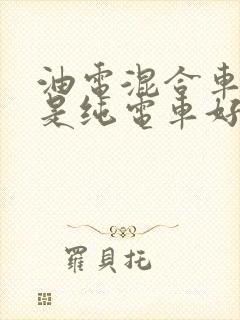 油電混合車
是純電車好
羅貝托